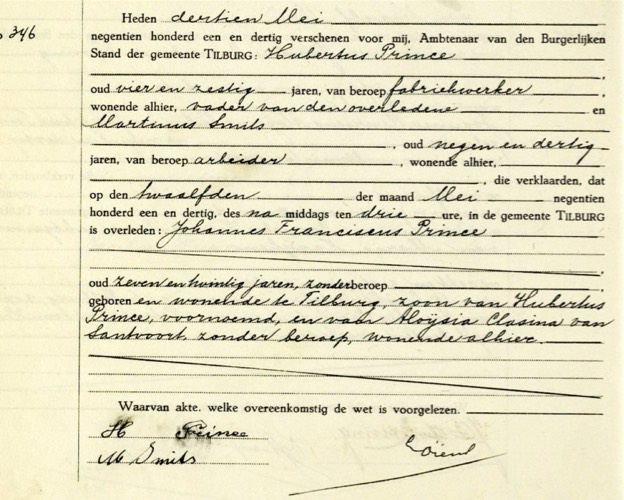 Heden dertien Mei
346
negentien honderd een en dertig verschenen voor mij, Ambtenaar van den Burgerlijken
Stand der gemeente TILBURG: Hubertus Prince
,
oud vier en zestig jaren, van beroep fabriekwerker ,
wonende alhier, vader van den overledene en
Martinus Smits
, oud negen en dertig
jaren, van beroep arbeider , wonende alhier,
, die verklaarden, dat
op den twaalfden der maand Mei negentien
honderd een en dertig, des na middags ten drie ure, in de gemeente TILBURG
is overleden: Johannes Franciscus Prince
,
oud zeven en twintig jaren, zonder beroep ,
geboren en wonende te Tilburg, zoon van Hubertus
Prince, voornoemd, en van Aloÿsia Clasina van
Santvoort, zonder beroep, wonende alhier.
Waarvan akte. welke overeenkomstig de wet is voorgelezen.
H Prince
M Smits